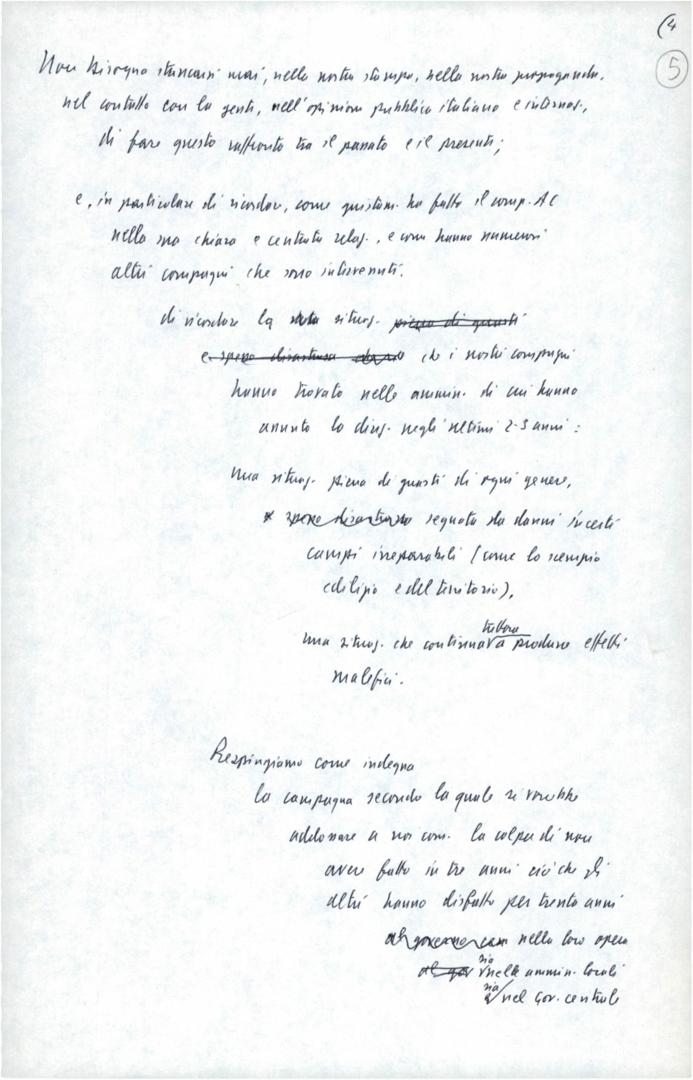 (4
5
Non bisogna stancarsi mai, nella nostra stampa, nella nostra propaganda,
nel contatto con la gente, nell'opinione pubblica italiana e internaz.,
di fare questo raffronto tra il passato e il presente;
e, in particolare di ricordare, come giustam. ha fatto il comp. AC
nella sua chiara e centrata relaz., e come hanno numerosi
altri compagni che sono intervenuti.
di ricordare la situaz. piena di guasti
e spesso disastrosa che i nostri compagni
hanno trovato nelle ammin. di cui hanno
assunto la direz. negli ultimi 2-3 anni:
una situaz. piena di guasti di ogni genere,
spesso disastrosa segnata da danni in certi
campi irreparabili (come lo scempio
edilizio e del territorio),
una situaz. che continua tuttora a produrre effetti
malefici.
Respingiamo come indegna
la campagna secondo la quale si vorrebbe
addossare a noi com. la colpa di non
avere fatto in tre anni ciò che gli
altri hanno disfatto per trenta anni
nella loro opera
sia nelle ammin. locali
sia nel Gov. centrale